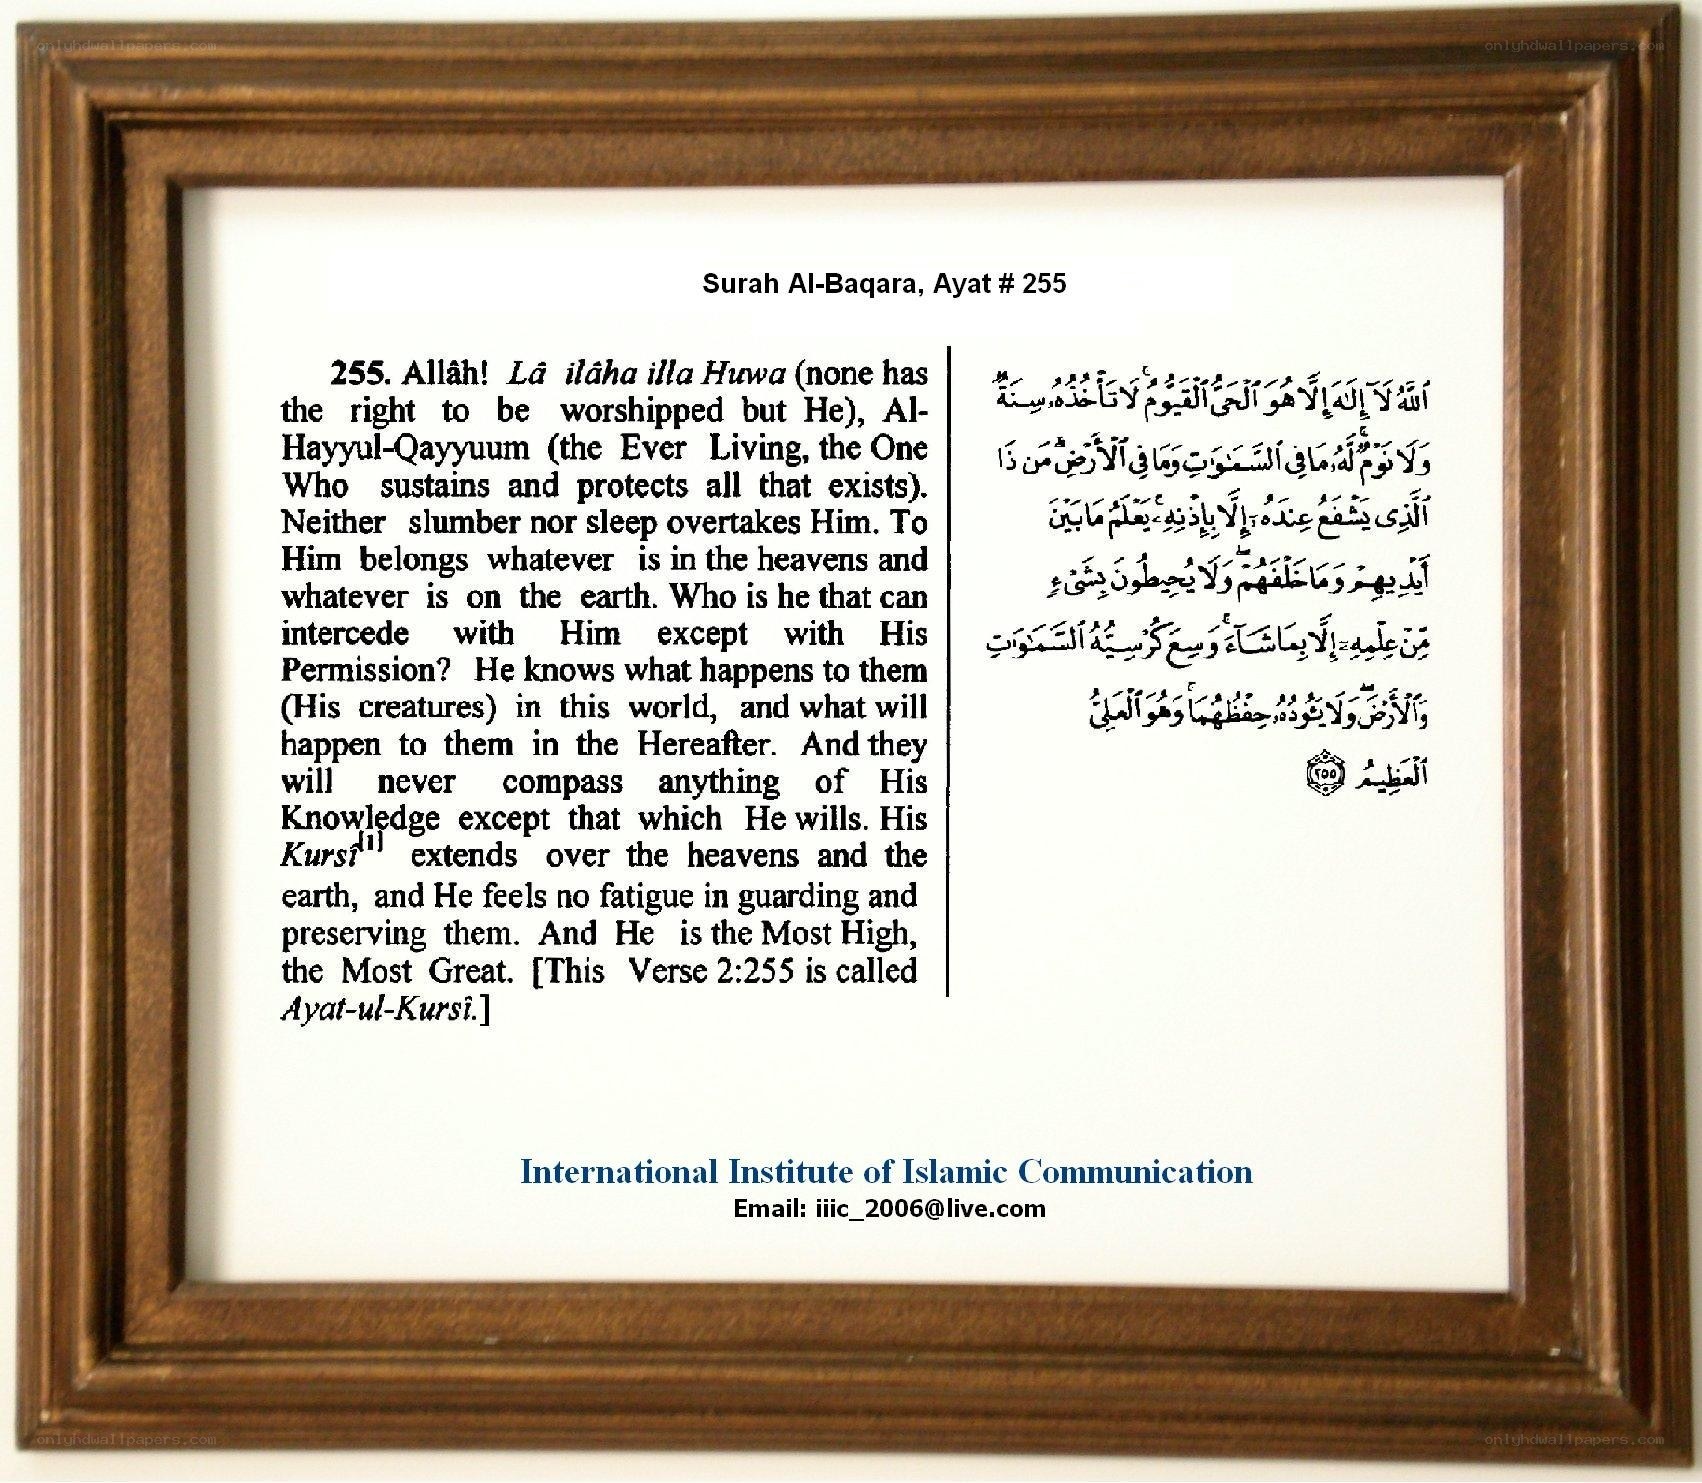 onlyhdwallpapers.com
onlyhdwallpapers.com
Surah Al-Baqara, Ayat # 255
255. Allâh! Lâ ilâha illa Huwa (none has
the right to be worshipped but He), Al-
Hayyul-Qayyuum (the Ever Living, the One
Who sustains and protects all that exists).
Neither slumber nor sleep overtakes Him. To
Him belongs whatever is in the heavens and
whatever is on the earth. Who is he that can
intercede with Him except with His
Permission? He knows what happens to them
(His creatures) in this world, and what will
happen to them in the Hereafter. And they
will never compass anything of His
Knowledge except that which He wills. His
Kursî[1] extends over the heavens and the
earth, and He feels no fatigue in guarding and
preserving them. And He is the Most High,
the Most Great. [This Verse 2:255 is called
Ayat-ul-Kursî.]
ٱللَّهُ لَآ إِلَٰهَ إِلَّا هُوَ ٱلْحَىُّ ٱلْقَيُّومُ ۚ لَا تَأْخُذُهُۥ سِنَةٌ
وَلَا نَوْمٌ ۚ لَّهُۥ مَا فِى ٱلسَّمَٰوَٰتِ وَمَا فِى ٱلْأَرْضِ ۗ مَن ذَا
ٱلَّذِى يَشْفَعُ عِندَهُۥٓ إِلَّا بِإِذْنِهِۦ ۚ يَعْلَمُ مَا بَيْنَ
أَيْدِيهِمْ وَمَا خَلْفَهُمْ ۖ وَلَا يُحِيطُونَ بِشَىْءٍ
مِّنْ عِلْمِهِۦٓ إِلَّا بِمَا شَآءَ ۚ وَسِعَ كُرْسِيُّهُ ٱلسَّمَٰوَٰتِ
وَٱلْأَرْضَ ۖ وَلَا يَـُٔودُهُۥ حِفْظُهُمَا ۚ وَهُوَ ٱلْعَلِىُّ
ٱلْعَظِيمُ ٢٥٥
International Institute of Islamic Communication
Email: iiic_2006@live.com
onlyhdwallpapers.com
onlyhdwallpapers.com